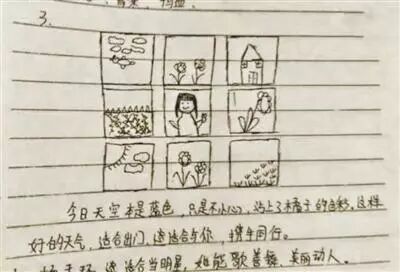 3.
今日天空本是蓝色，只是不小心，沾上了橘子的色彩。这样
好的天气，适合出门，还适合与你，携手同行。
适合当明星，她能歌善舞，美丽动人。